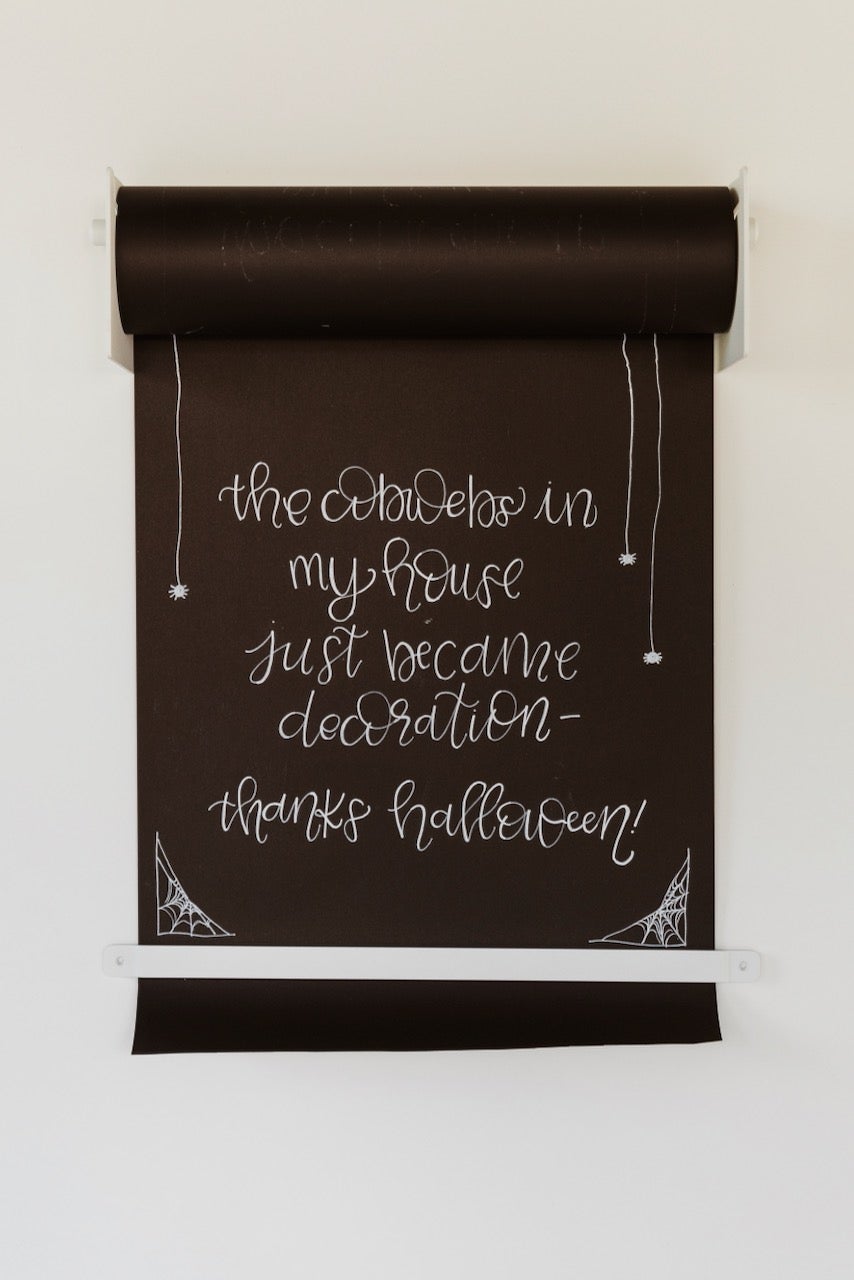 the cobwebs in
my house
just became
decoration-
thanks halloween!